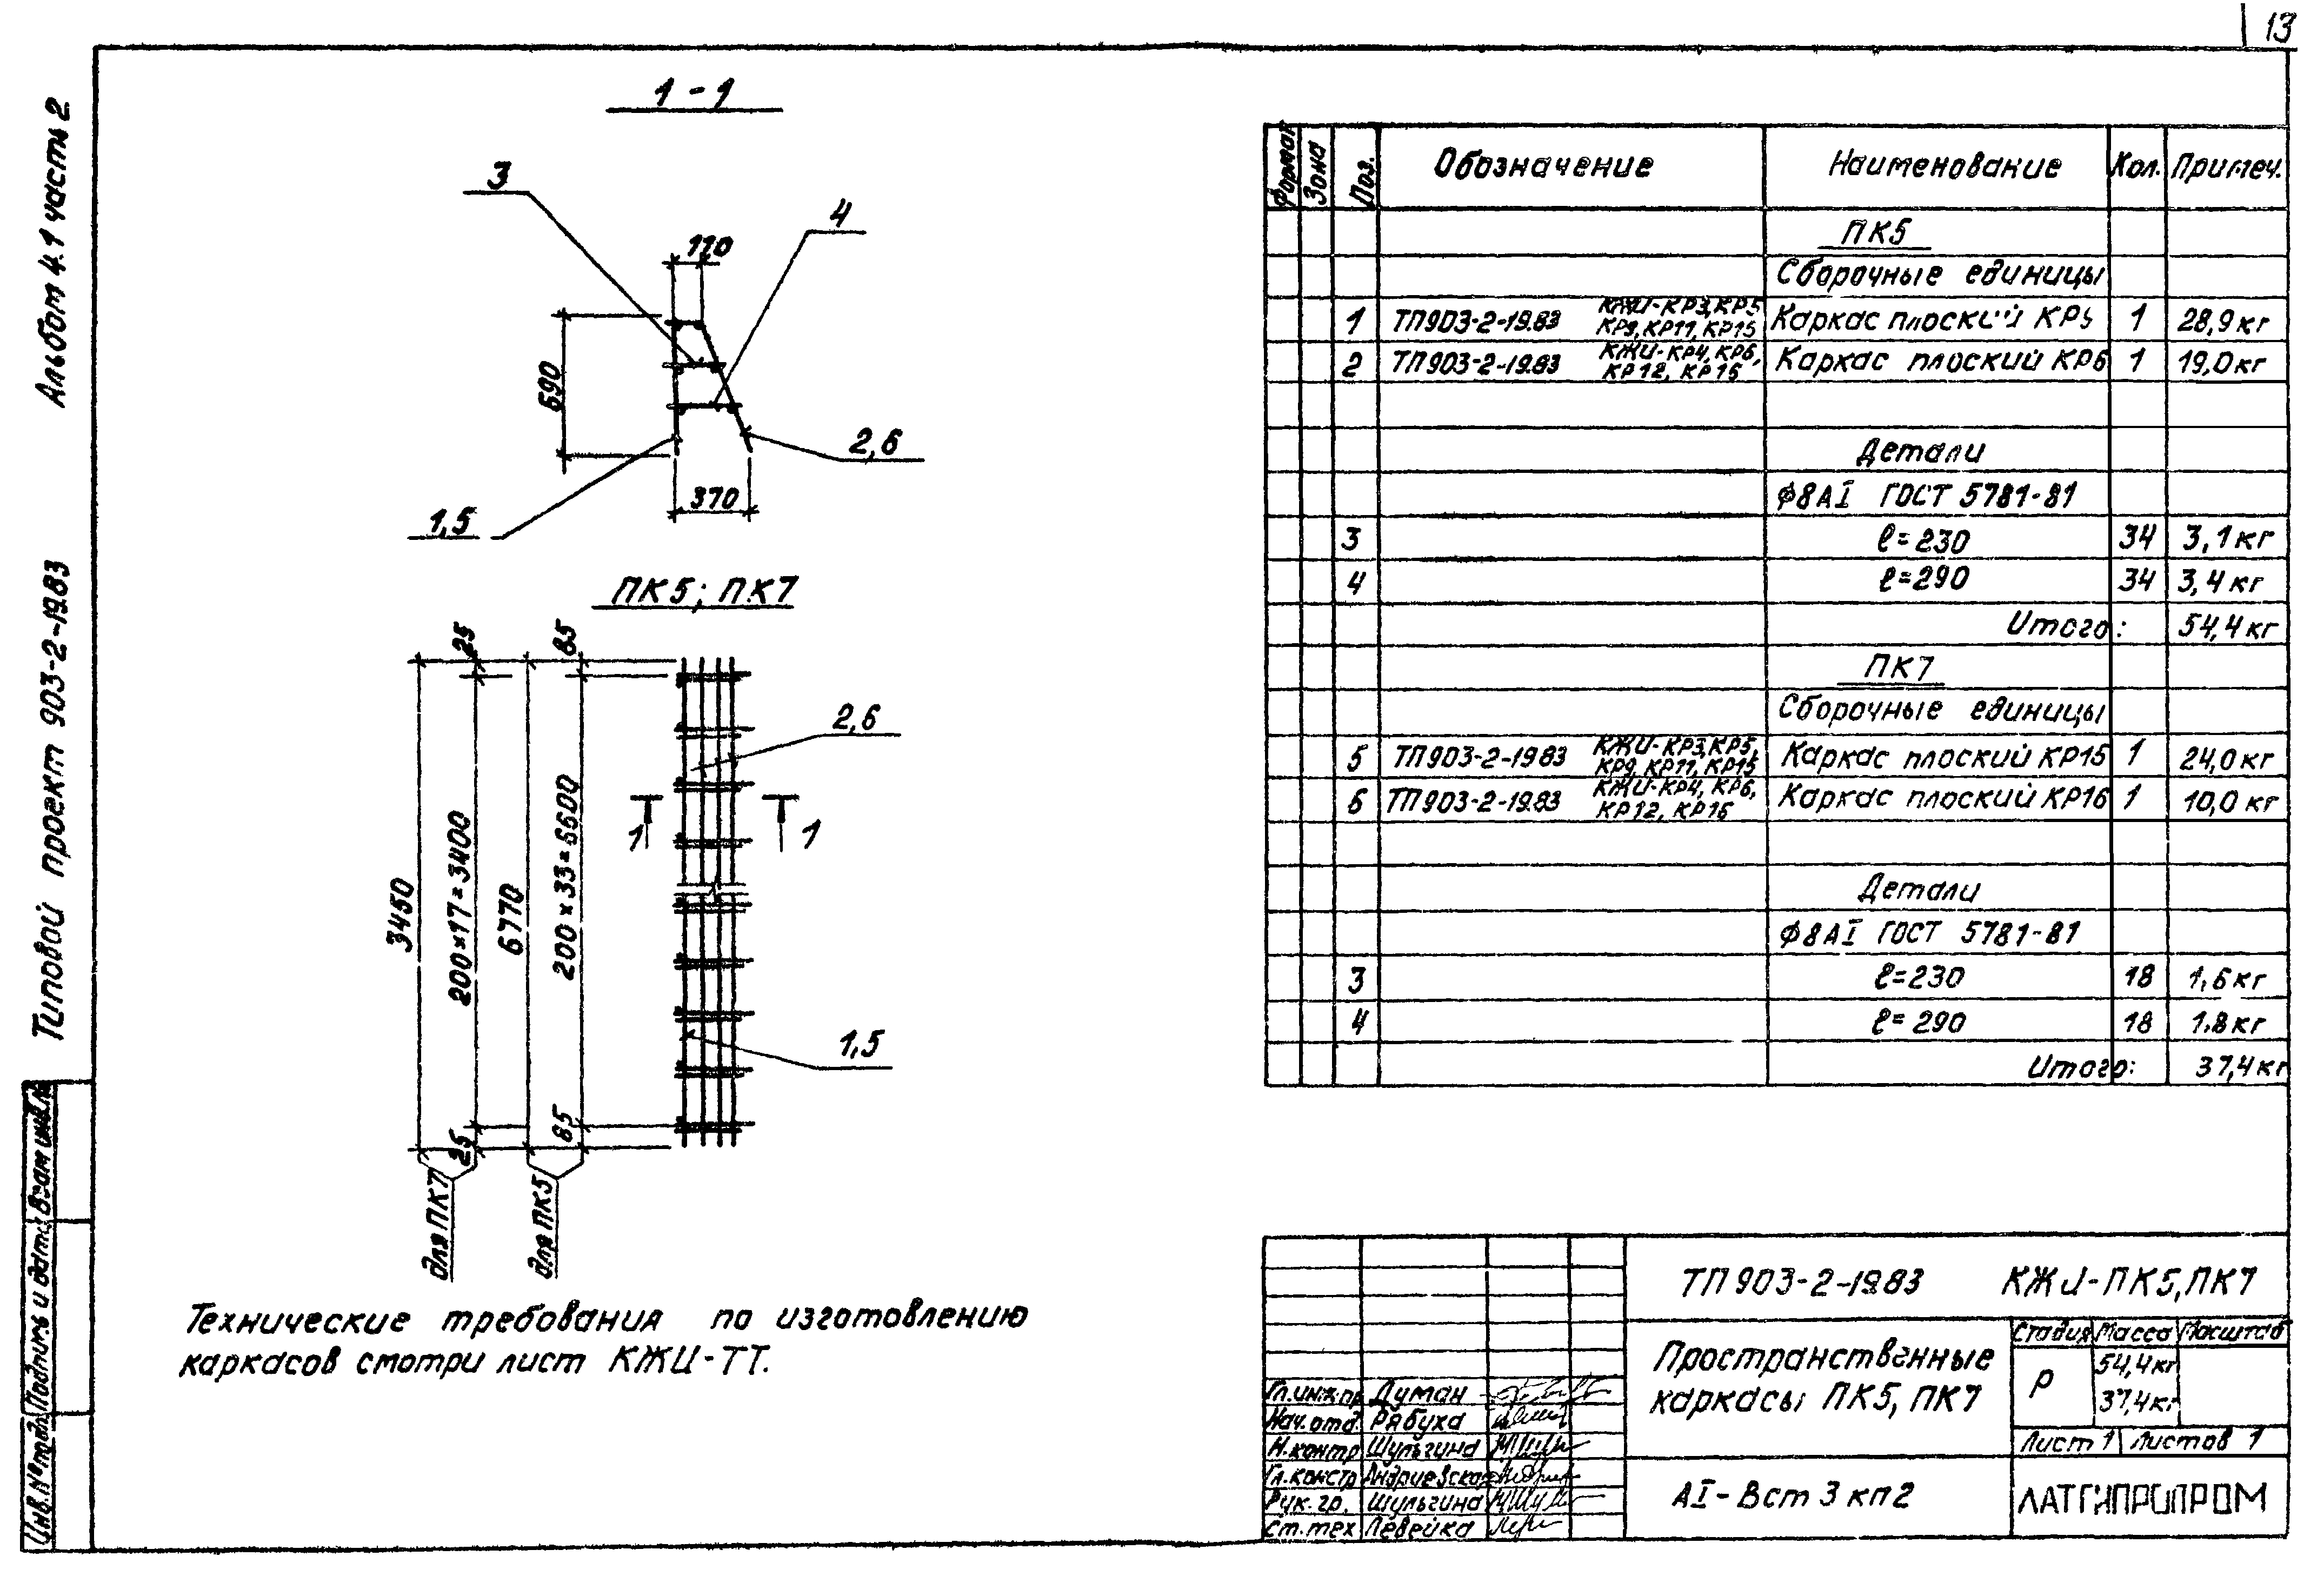 13
Альбом 4.1 часть 2
Типовой проект 903-2-19.83
Взам инв.№
Подпись и дата
Инв.№ подл.
1 - 1
3
4
110
690
2,6
370
1,5
ПК5; ПК7
25
85
2,6
1
1
3450
200×17=3400
6770
200×33=6600
1,5
25
85
для ПК7
для ПК5
Технические требования по изготовлению
каркасов смотри лист КЖИ-ТТ.
Формат Зона Поз. Обозначение Наименование Кол. Примеч.
ПК5
Сборочные единицы
1 ТП903-2-19.83 КЖИ-КР3,КР5 КР9,КР11,КР15 Каркас плоский КР5 1 28,9кг
2 ТП903-2-19.83 КЖИ-КР4,КР6, КР12, КР16 Каркас плоский КР6 1 19,0кг
Детали
Ф8АI ГОСТ 5781-81
3 ℓ=230 34 3,1кг
4 ℓ=290 34 3,4кг
Итого: 54,4кг
ПК7
Сборочные единицы
5 ТП903-2-19.83 КЖИ-КР3,КР5, КР9, КР11, КР15 Каркас плоский КР15 1 24,0кг
6 ТП903-2-19.83 КЖИ-КР4, КР6, КР12, КР16 Каркас плоский КР16 1 10,0кг
Детали
Ф8АI ГОСТ 5781-81
3 ℓ=230 18 1,6кг
4 ℓ=290 18 1.8кг
Итого: 37,4кг
ТП 903-2-19.83 КЖИ-ПК5,ПК7
Пространственные
каркасы ПК5, ПК7
Стадия Масса Масштаб
Р 54,4кг
37,4кг
Лист 1 Листов 1
АI-Вст3кп2
ЛАТГИПРОПРОМ
Гл.инж.пр. Думан
Нач.отд. Рябуха
Н.контр Шульгина
Гл.констр
Рук.гр. Шульгина
Ст.тех Левейка